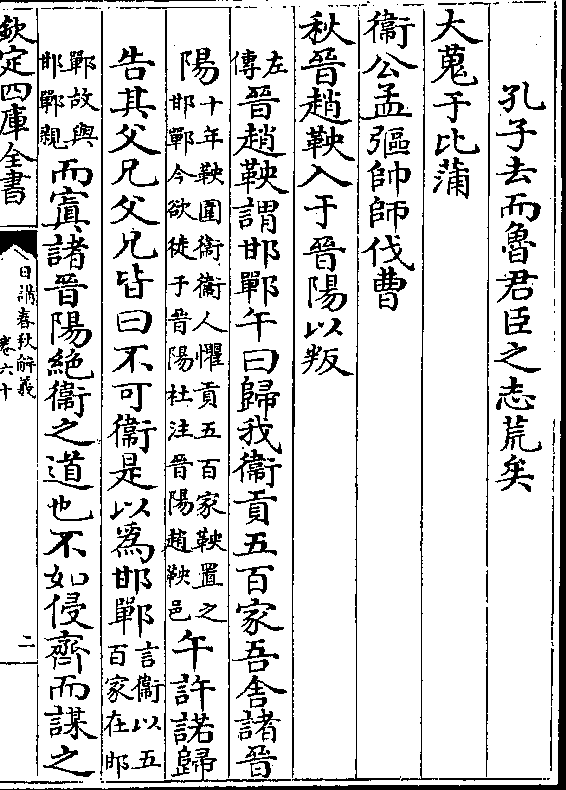 孔子去而魯君臣之志荒矣
大蒐于比蒲
衞公孟彄帥師伐曹
秋晉趙鞅入于晉陽以叛
左傳晉趙鞅謂邯鄲午曰歸我衞貢五百家吾舍諸晉
陽十年鞅圍衞衞人懼貢五百家鞅置之邯鄲今欲徙于晉陽杜注晉陽趙鞅邑午許諾歸
告其父兄父兄皆曰不可衞是以為邯鄲言衞以五百家在邯
鄲故與邯鄲親而寘諸晉陽絶衞之道也不如侵齊而謀之
欽定四庫全書
日講春秋解義
卷六十
二